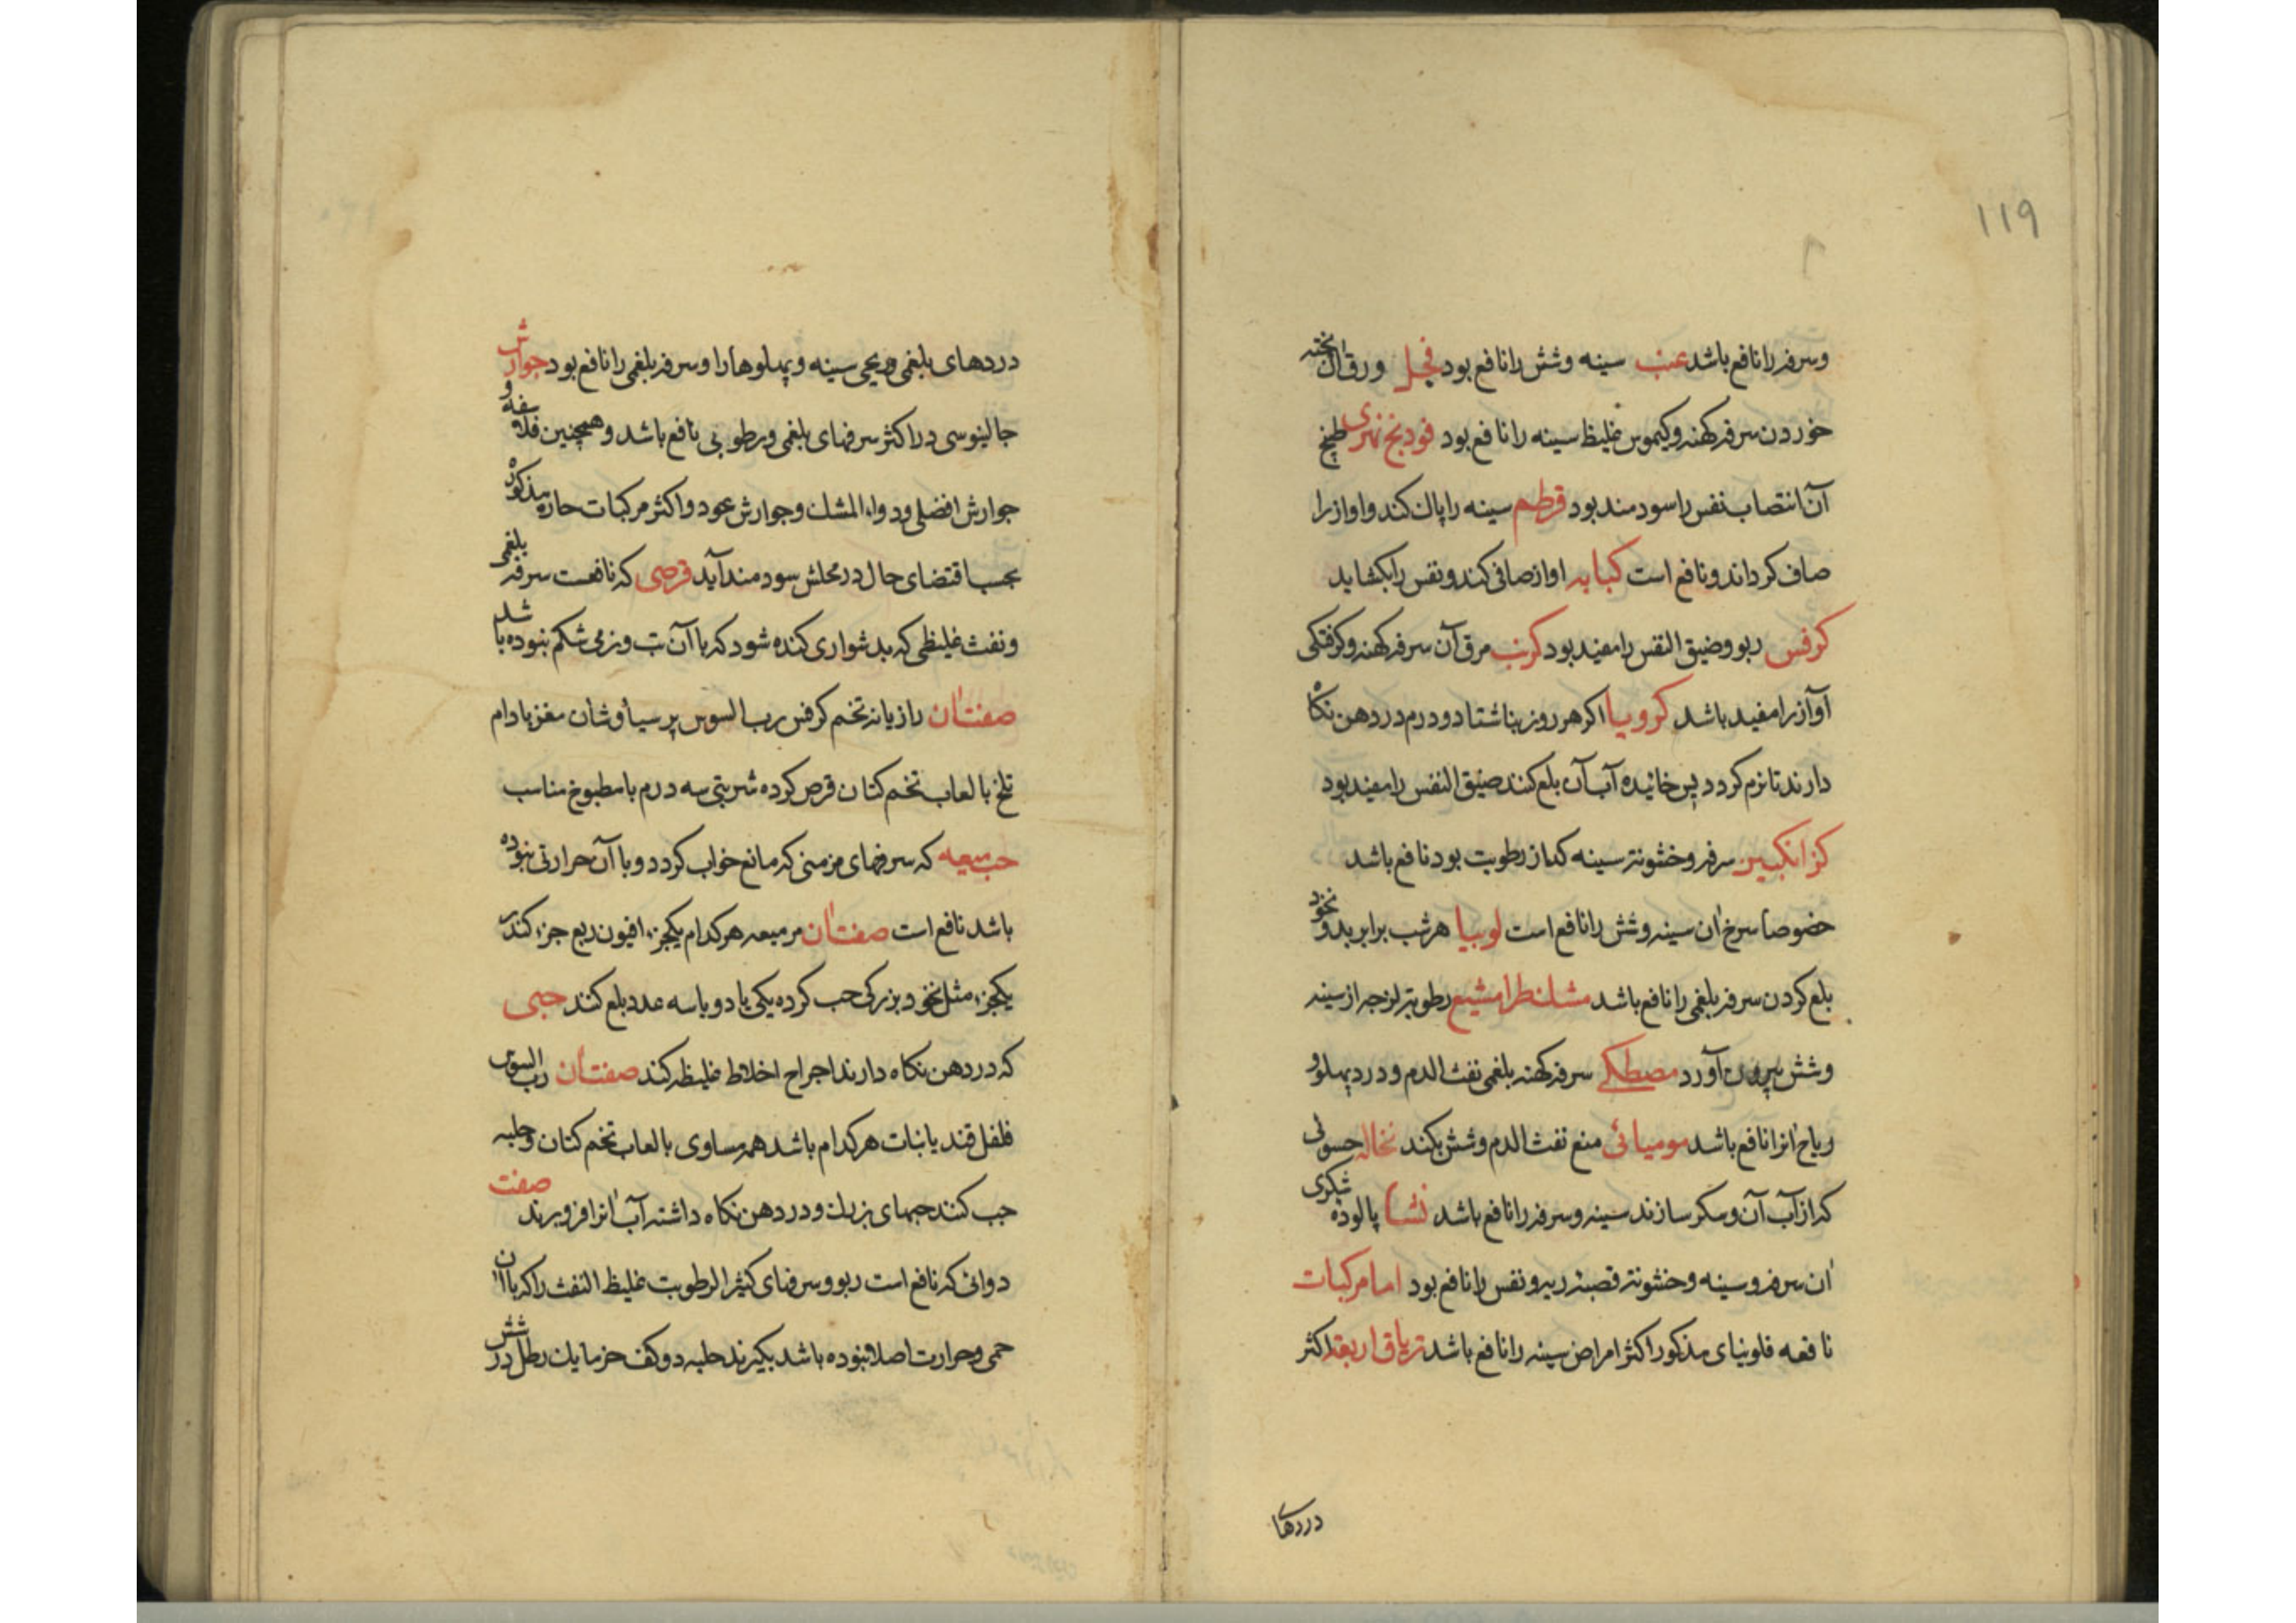 ۱۱۹
وسرفه را نافع باشد عنب سینه وشش را نافع بود فجل ورق آن پخته
خوردن سرفه کهنه وکیموس غلیظ سینه را نافع بود فودنج نهری طبیخ
آن انتصاب نفس را سودمند بود قرطم سینه را پاک کند واواز را
صاف کرداند ونافع است کبابه اواز صافی کند ونفس را بکشاید
کرفس ربو وضیق النفس را مفید بود کرنب مرق آن سرفه کهنه وکرفتکی
آواز را مفید باشد کرویا اکر هر روز بناشتا دو درم در دهن نکاه
دارند تا نرم کردد پس خائیده آب آن بلع کنند ضیق النفس را مفید بود
کزانکبین سرفه وخشونة سینه که از رطوبت بود نافع باشد
خصوصا سرخ آن سینه وشش را نافع است لوبیا هر شب برابر بدو نخود
بلع کردن سرفه بلغمی را نافع باشد مشکطرامشیع رطوبة لزجه از سینه
وشش بیرون آورد مصطکی سرفه کهنه بلغمی نفث الدم ودرد پهلو و
ریاح آنرا نافع باشد مومیائی منع نفث الدم وشش بکند نخاله حسوئی
که از آب آن وسکر سازند سینه وسرفه را نافع باشد نشا پالوده شکری
آن سرفه وسینه وخشونة قصبه ریه ونفس را نافع بود اما مرکبات
نافعه فلونیای مذکور اکثر امراض سینه را نافع باشد تریاق اربعه اکثر
دردهای
دردهای بلغمی وریحی سینه وپهلوها را وسرفه بلغمی را نافع بود جوارش
جالینوسی در اکثر سرفهای بلغمی ورطوبی نافع باشد وهمچنین فلاسفه و
جوارش افضلی ودواء المشک وجوارش عود واکثر مرکبات حاره مذکوره
بحسب اقتضای حال در محلش سودمند آید قرصی که نافعست سرفه بلغمی
ونفث غلیظی که بدشواری کنده شود که با آن تب ونرمی شکم نبوده باشد
صفت آن رازیانه تخم کرفس رب السوس پر سیاوشان مغز بادام
تلخ بالعاب تخم کتان قرص کرده شربتی سه درم با مطبوخ مناسب
حب میعه که سرفهای مزمنی که مانع خواب کردد وبا آن حرارتی نبوده
باشد نافع است صفت آن مر میعه هر کدام یکجزء افیون ربع جزء کندر
یکجزء مثل نخود بزرکی حب کرده یکی یا دو یا سه عدد بلع کنند حبی
که در دهن نکاه دارند اجراح اخلاط غلیظه کند صفت آن رب السوس
فلفل قند یا نبات هر کدام باشد همه مساوی بالعاب تخم کتان وحلبه
حب کنند حبهای بزرک ودر دهن نکاه داشته آب آنرا فرو برند صفت
دوائی که نافع است ربو وسرفهای کثیر الرطوبت غلیظ النفث را که با آن
حمی وحرارت اصلا نبوده باشد بکیرند حلبه دو کف خرما یک رطل در شش